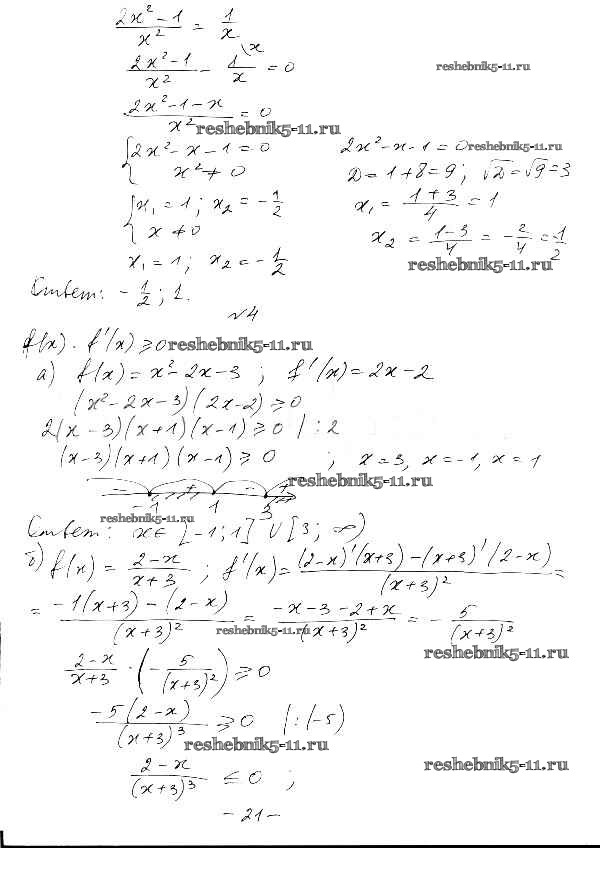 (2x² - 1)/x² = 1/x
(2x² - 1)/x² - 1/x \x = 0
reshebnik5-11.ru
(2x² - 1 - x)/x² = 0
reshebnik5-11.ru
{ 2x² - x - 1 = 0   2x² - x - 1 = 0 reshebnik5-11.ru
x² ≠ 0   D = 1 + 8 = 9; √D = √9 = 3
{ x₁ = 1; x₂ = -1/2   x₁ = (1 + 3)/4 = 1
x ≠ 0   x₂ = (1 - 3)/4 = -2/4 = -1/2
x₁ = 1; x₂ = -1/2
reshebnik5-11.ru
Ответ: -1/2; 1.
№4
f(x) · f'(x) ≥ 0 reshebnik5-11.ru
а) f(x) = x² - 2x - 3; f'(x) = 2x - 2
(x² - 2x - 3)(2x - 2) ≥ 0
2(x - 3)(x + 1)(x - 1) ≥ 0 / : 2
(x - 3)(x + 1)(x - 1) ≥ 0 ; x = 3, x = -1, x = 1
reshebnik5-11.ru
- + - +
-1 1 3
reshebnik5-11.ru
Ответ: x ∈ [-1; 1] ∪ [3; ∞)
б) f(x) = (2 - x)/(x + 3); f'(x) = ((2 - x)'(x + 3) - (x + 3)'(2 - x))/(x + 3)² =
= (-1(x + 3) - (2 - x))/(x + 3)² = (-x - 3 - 2 + x)/(x + 3)² = -5/(x + 3)²
reshebnik5-11.ru
reshebnik5-11.ru
(2 - x)/(x + 3) · (-5/(x + 3)²) ≥ 0
-5(2 - x)/(x + 3)³ ≥ 0 /:(-5)
reshebnik5-11.ru
(2 - x)/(x + 3)³ ≤ 0 ;
reshebnik5-11.ru
- 21 -